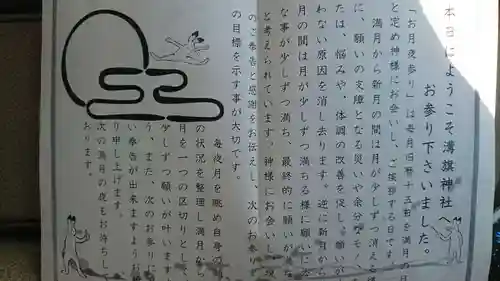 本日はようこそ溝旗神社
お参り下さいました。
「お月夜参り」は毎月旧暦十五日を満月の日
と定め神様にお会いし、ご挨拶する日です
満月から新月の間は月が少しずつ消える様
に、願いの支障となる災いや余分なモノ
たは、悩みや、体調の改善を促し、願いが
わない原因を消し去ります。逆に新月から
月の間は月が少しずつ満ちる様に願いに必
な事が少しずつ満ち、最終的に願いが
と考えられています。神様にお会いし、
のご奉告と感謝をお伝えし、次のお参り
の目標を示す事が大切です。
毎夜月を眺め自身の
の状況を整理し満月から
月を一つの区切りとして、
少しずつ願いが叶います
う、また、次のお参りに
い奉告が出来ますようお
り申し上げます。
次の満月の夜もお待ちし
おります。